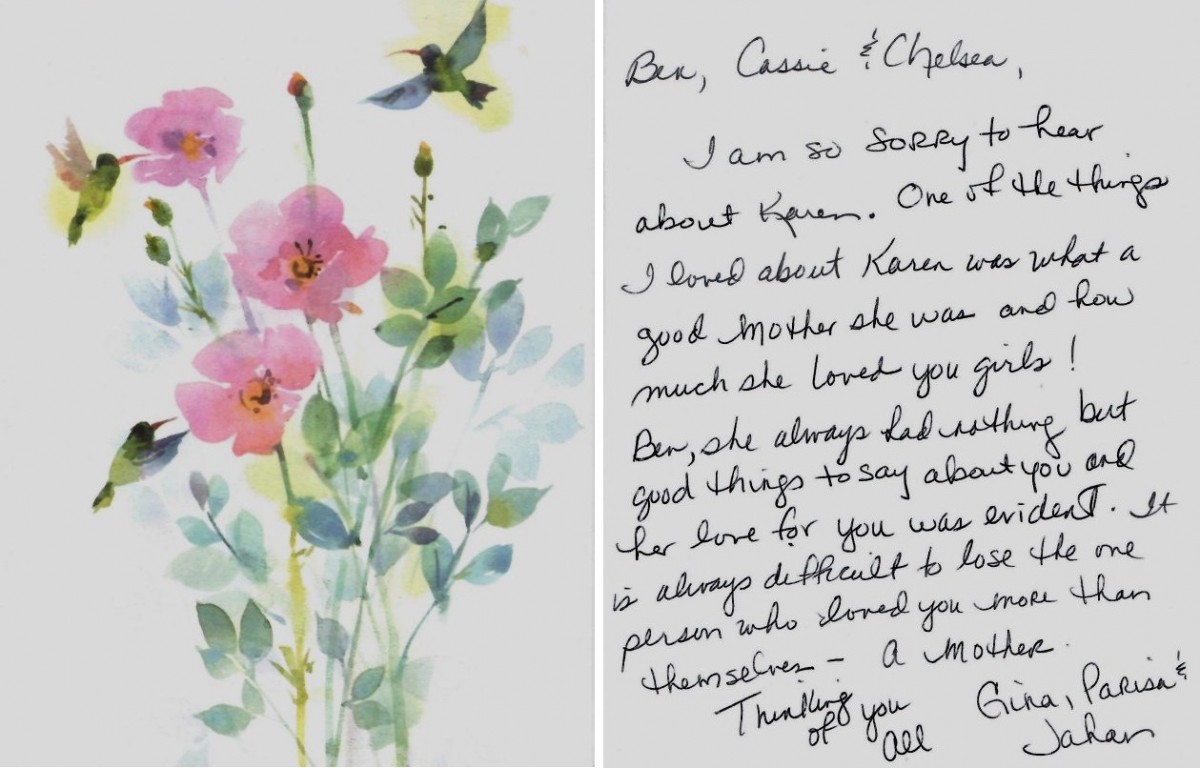 Ben, Cassie & Chelsea,
I am so SORRY to hear
about Karen. One of the things
I loved about Karen was what a
good Mother she was and how
much she loved you girls!
Ben, she always had nothing but
good things to say about you and
her love for you was evident. It
is always difficult to lose the one
person who loved you more than
themselves – A Mother.
Thinking
of you
All
Gina, Parisa &
Jahan